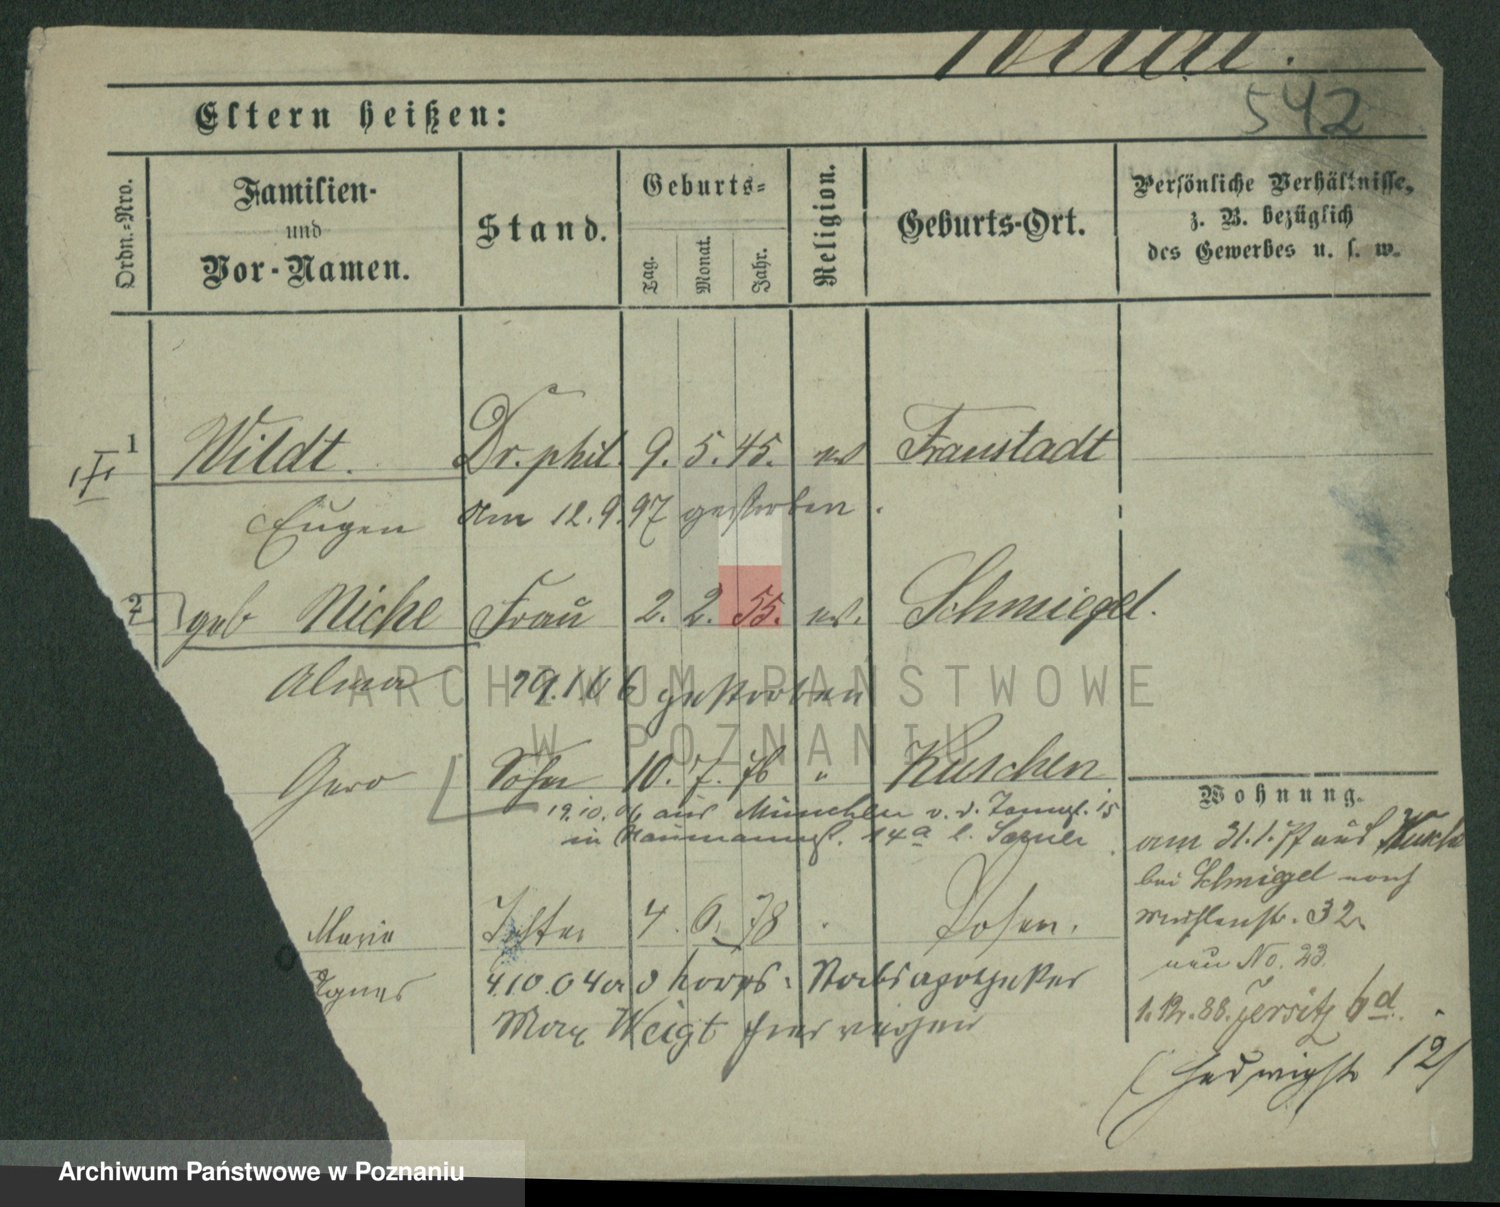 Wildt.
542
Eltern heißen:
Ordn.-Nro.
Familien-
und
Vor-Namen.
Stand.
Geburts-
Tag.
Monat.
Jahr.
Religion.
Geburts-Ort.
Persönliche Verhältnisse,
z. B. bezüglich
des Gewerbes u. s. w.
1 Wildt. Dr. phil. 9. 5. 45. ev Fraustadt
Eugen am 12. 9. 97 gestorben.
2 geb Niche Frau 2. 2. 55. ev. Schmiegel.
Alma 29.1 6 gestorben
Gero Sohn 10. 7. 76 " Kuschen
19.10.06 aus München v. d. 15
in Naumannst. 14a b.
Wohnung.
am 31.1.77 aus
bei Schmiegel nach
Mühlenstr. 32
neu No. 23.
Marie Tochter 4. 6. 78 Posen.
Agnes 4.10.04 Korps-Stabsapotheker
Max Weigt hier
1. 88. Jersitz 6d.
(Hedwigstr 12/
ARCHIWUM PAŃSTWOWE
W POZNANIU
Archiwum Państwowe w Poznaniu